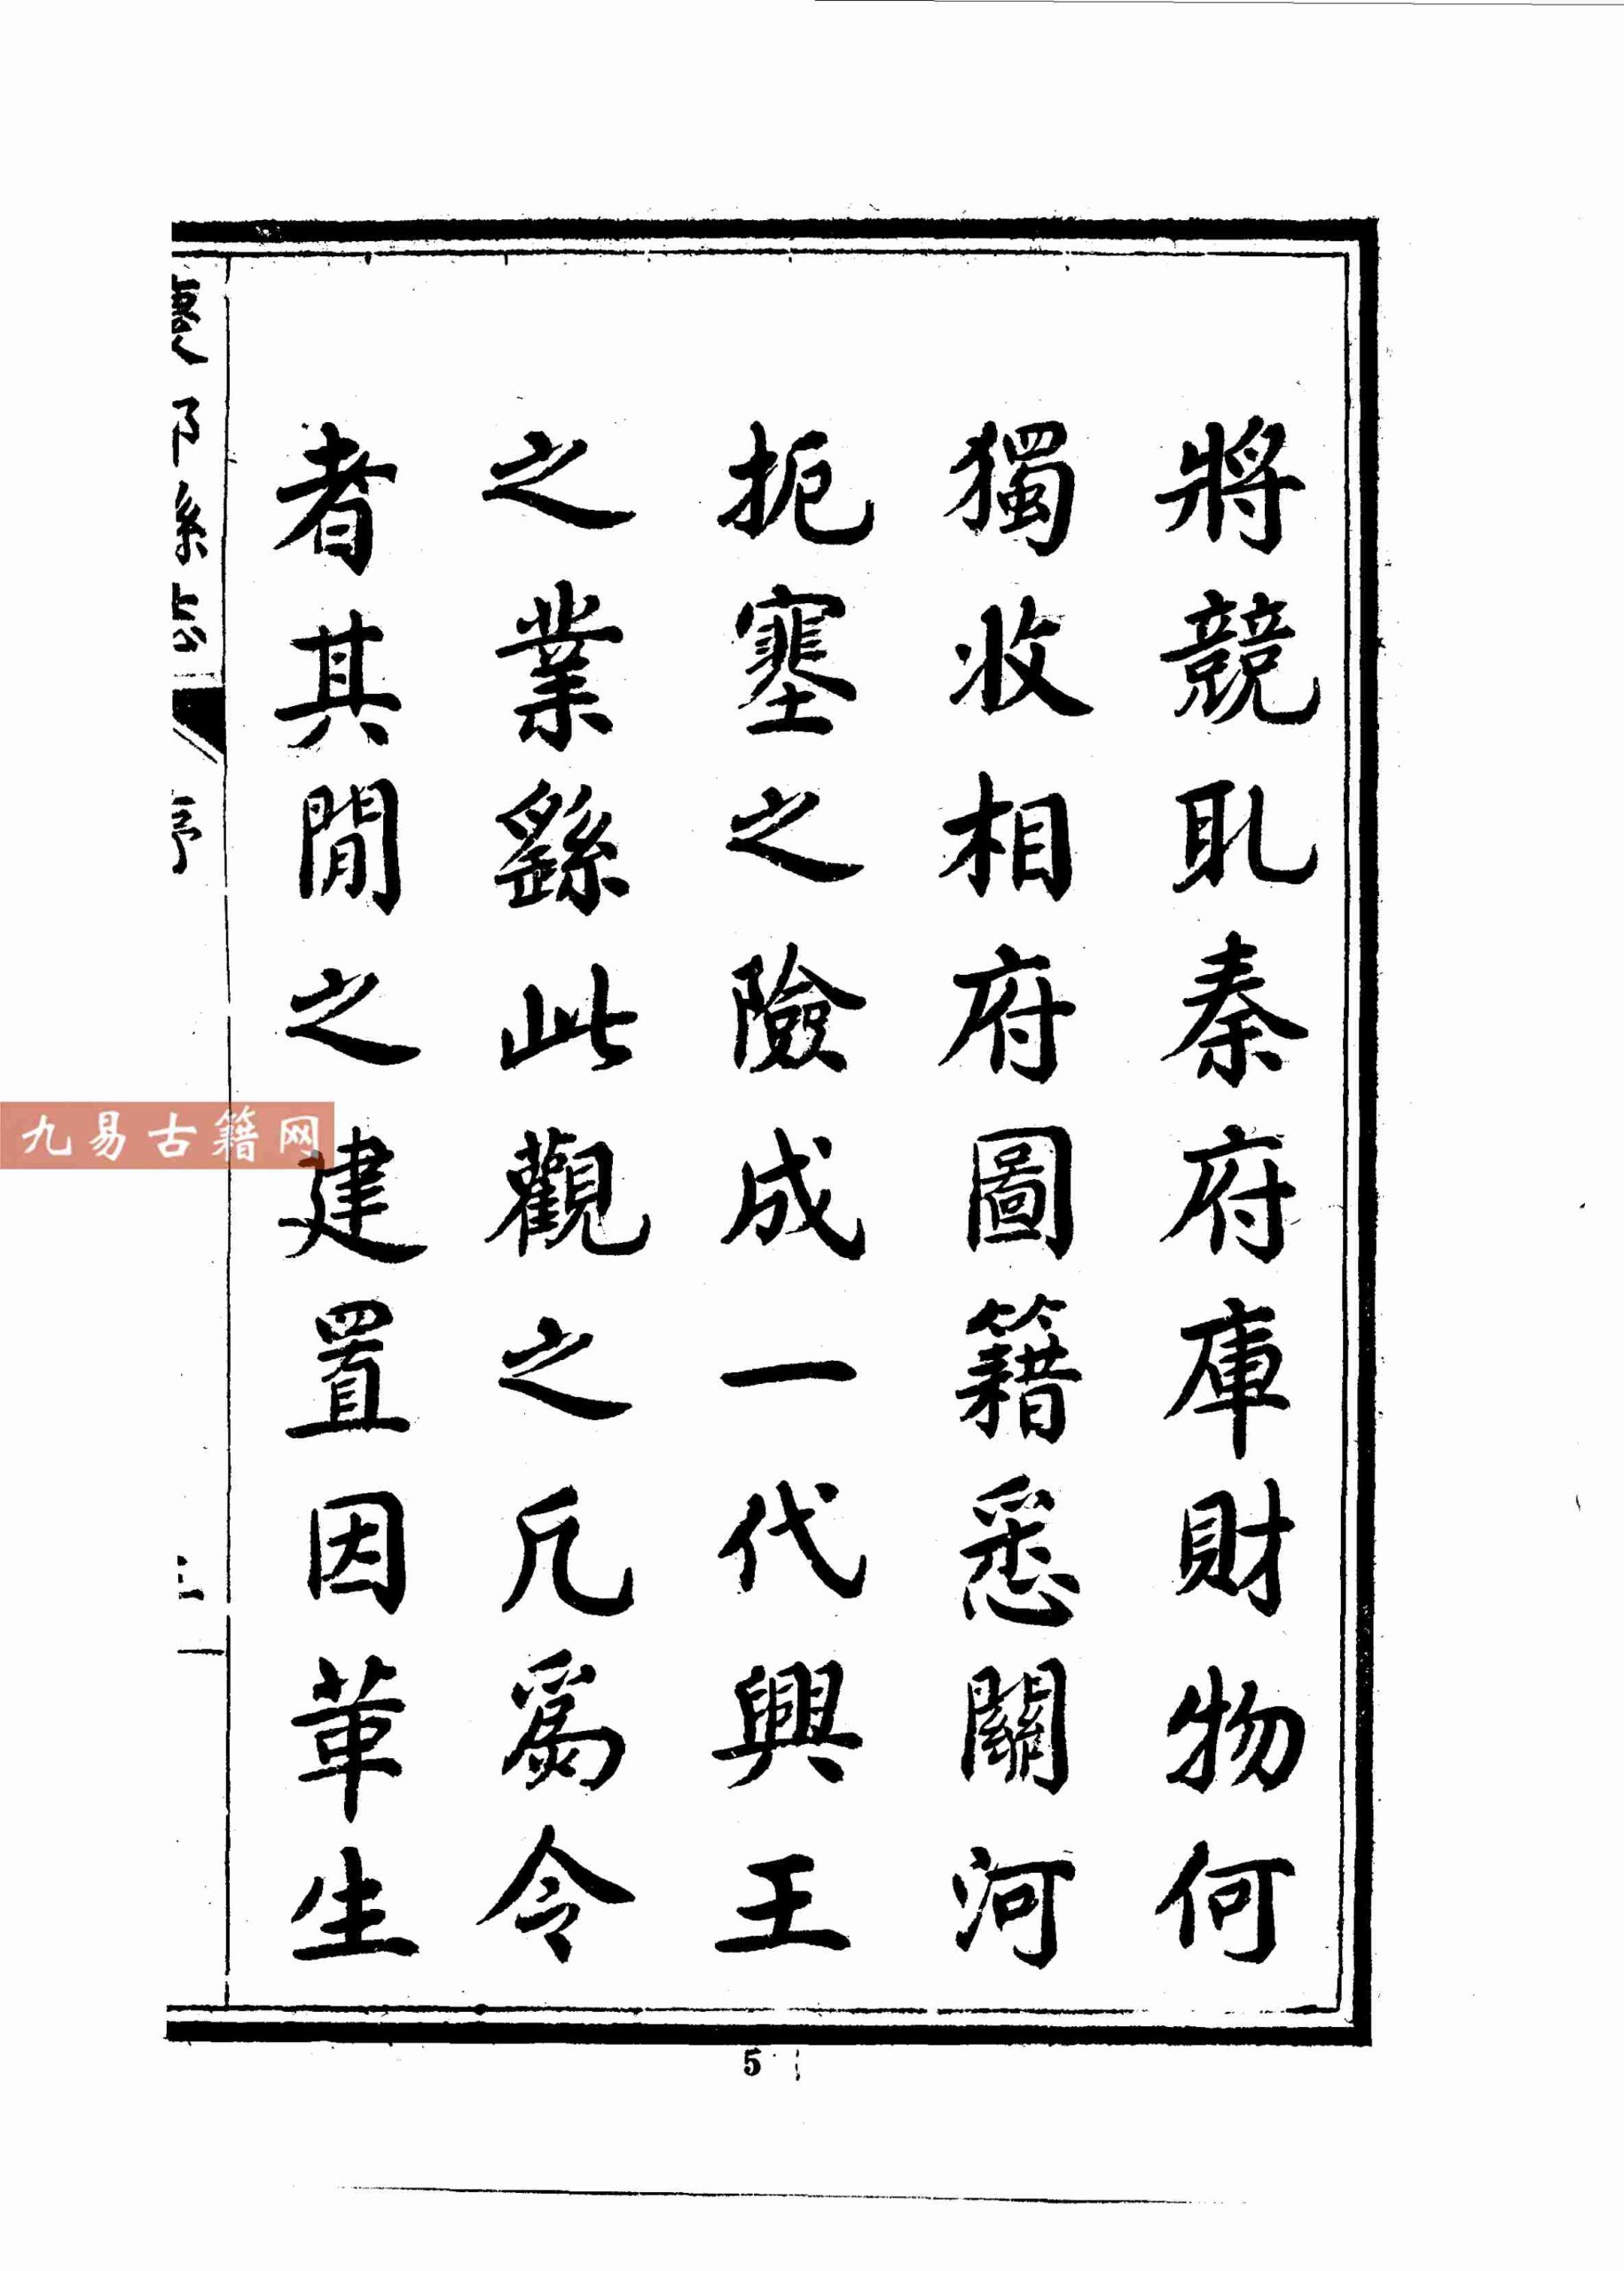 將競取秦府庫財物何
獨收相府圖籍悉關河
扼塞之險成一代興王
之業繇此觀之凡為令
者其閒之建置因革生
縣志
序
九易古籍网
5